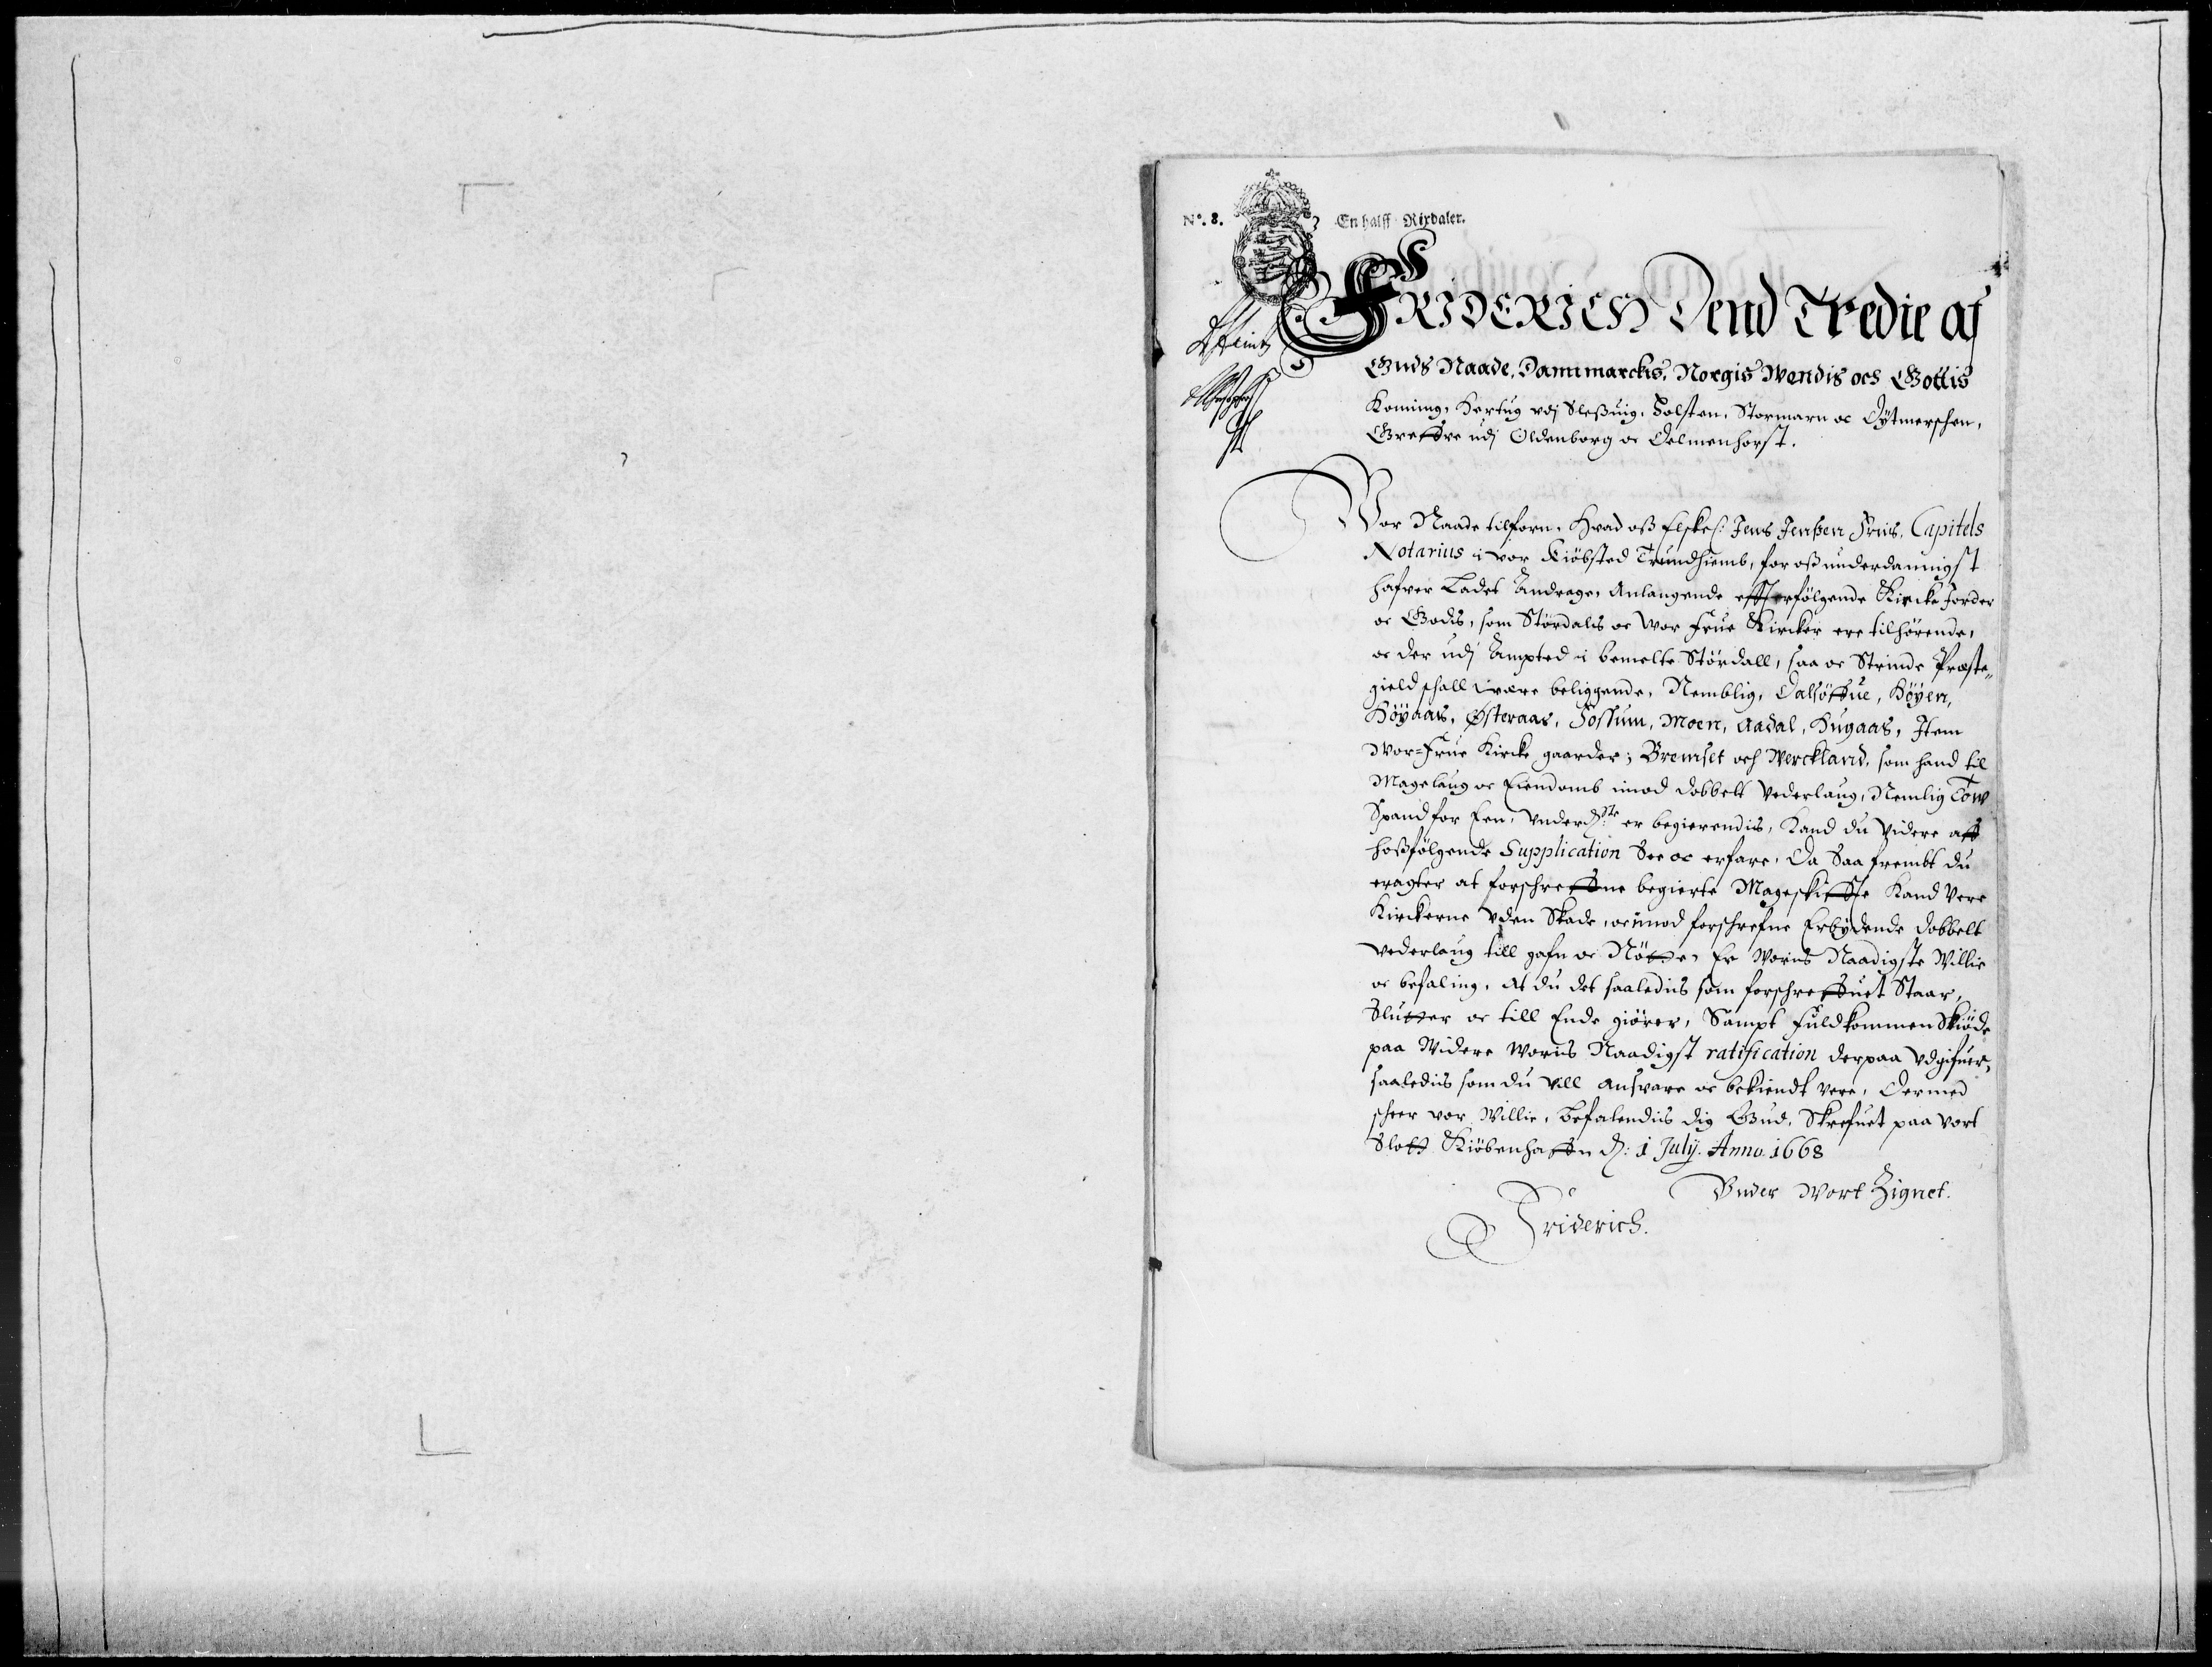 No. 8. En halff Rixdaler.
FRIDERICH Dend Tredie af
Guds Naade, Danmarckis, Norgis Wendis och Gottis
Konning, Hertug vdj Sleßuig, Holsten, Stormarn oc Dytmerschen,
Greffve udj Oldenborg oc Delmenhorst.
Vor Naade tilforn. Hvad oß Elskel: Jens Jenßen Friis, Capitels
Notarius i vor Kiöbsted Trundhiemb, for oß underdannigst
hafver Ladet Andrage, Anlangende effterfölgende Kircke Jorder
oc Godis, som Stördalis oc Wor Frue Kircker ere tilhörende,
oc der udj Ampted i bemelte Stördall, saa oc Strinde Præste„
gield schall være beliggende, Nemblig, Dalsöffue, Höyen,
Höyaas, Østeraas, Hossum, Moen, Aadal, Hugaas, Item
Wor=Frue Kircke gaarder; Bremset och Werckland, som hand til
Magelaug oc Eiendomb imod dobbelt Vederlaug, Nemlig Tow
Spand for Een, Underd:ste er begierendis, Kand du Videre aff
hoßfölgende Supplication See oc erfare, Da Saa frembt du
eragter at forschreffne begierte Mageskiffte Kand Vere
Kirckerne Uden Skade, oc imod forschrefne Erbydende dobbelt
vederlaug till gafn oc Nötte, Er Woris Naadigste Willie
oc befaling, At du det saaledis som forschreffuet Staar,
Slutter oc till Ende giörer, Sampt fuldkommen Skiöde
paa Widere Woris Naadigst ratification derpaa Udgifuer,
saaledis som du vill ansvare oc bekiendt vere, Dermed
scheer vor Willie, Befalendis dig Gud, Skrefuet paa vort
Slott Kiöbenhaffn d: 1 July. Anno. 1668
Under Wort Zignet.
Friderich.